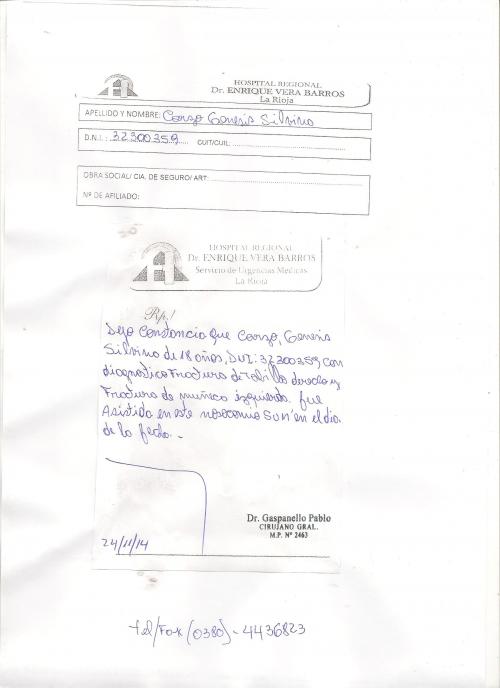 HOSPITAL REGIONAL
Dr. ENRIQUE VERA BARROS
La Rioja
APELLIDO Y NOMBRE: Carzo Genesis Silvino
D.N.I.: 32300359 CUIT/CUIL:
OBRA SOCIAL/ CIA. DE SEGURO/ ART:
Nº DE AFILIADO:
HOSPITAL REGIONAL
Dr. ENRIQUE VERA BARROS
Servicio de Urgencias Medicas
La Rioja
Rp.!
Dejo Constancia que Carzo, Genesis
Silvino de 18 años, DNI: 32300359, con
diagnostico Fractura de Tobillo derecho y
Fractura de muñeca izquierda. fue
Asistido en este nosocomio en el dia
de la fecha. -
24/11/14
Dr. Gaspanello Pablo
CIRUJANO GRAL.
M.P. Nº 2463
tel/Fax (0380) - 4436823